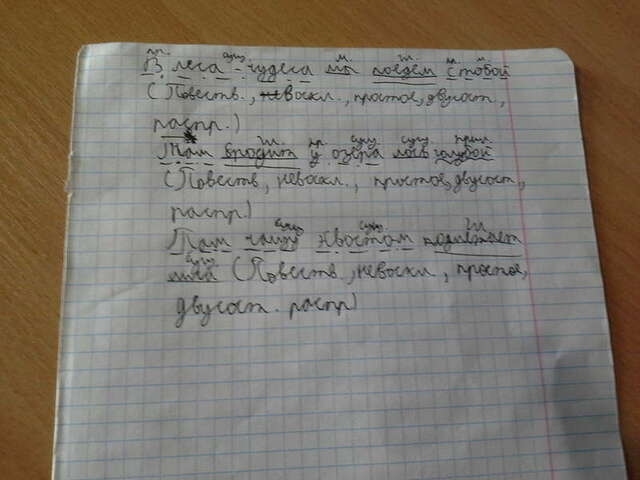 пр. сущ. м. гл. м. м.
В леса - чудеса мы поедем с тобой
(Повеств., невоскл., простое, двусост.,
распр.)
гл. пр. сущ. сущ. прил.
Там бродит у озера лось голубой
(Повеств., невоскл., простое, двусост.,
распр.)
сущ. сущ. гл.
Там чащу хвостом подметает
сущ.
лиса (Повеств., невоскл., простое,
двусост. распр)